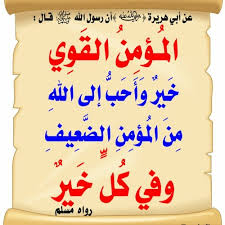 عن أبي هريرة ﴿رضي الله عنه﴾ أن رسول الله ﷺ قال :
المُؤمِنُ القَوِي
خَيرٌ وَأَحَبُّ إلى اللهِ
مِنَ المُؤمِنِ الضَّعِيفِ
وَفي كُلٍّ خَيرٌ
رواه مسلم